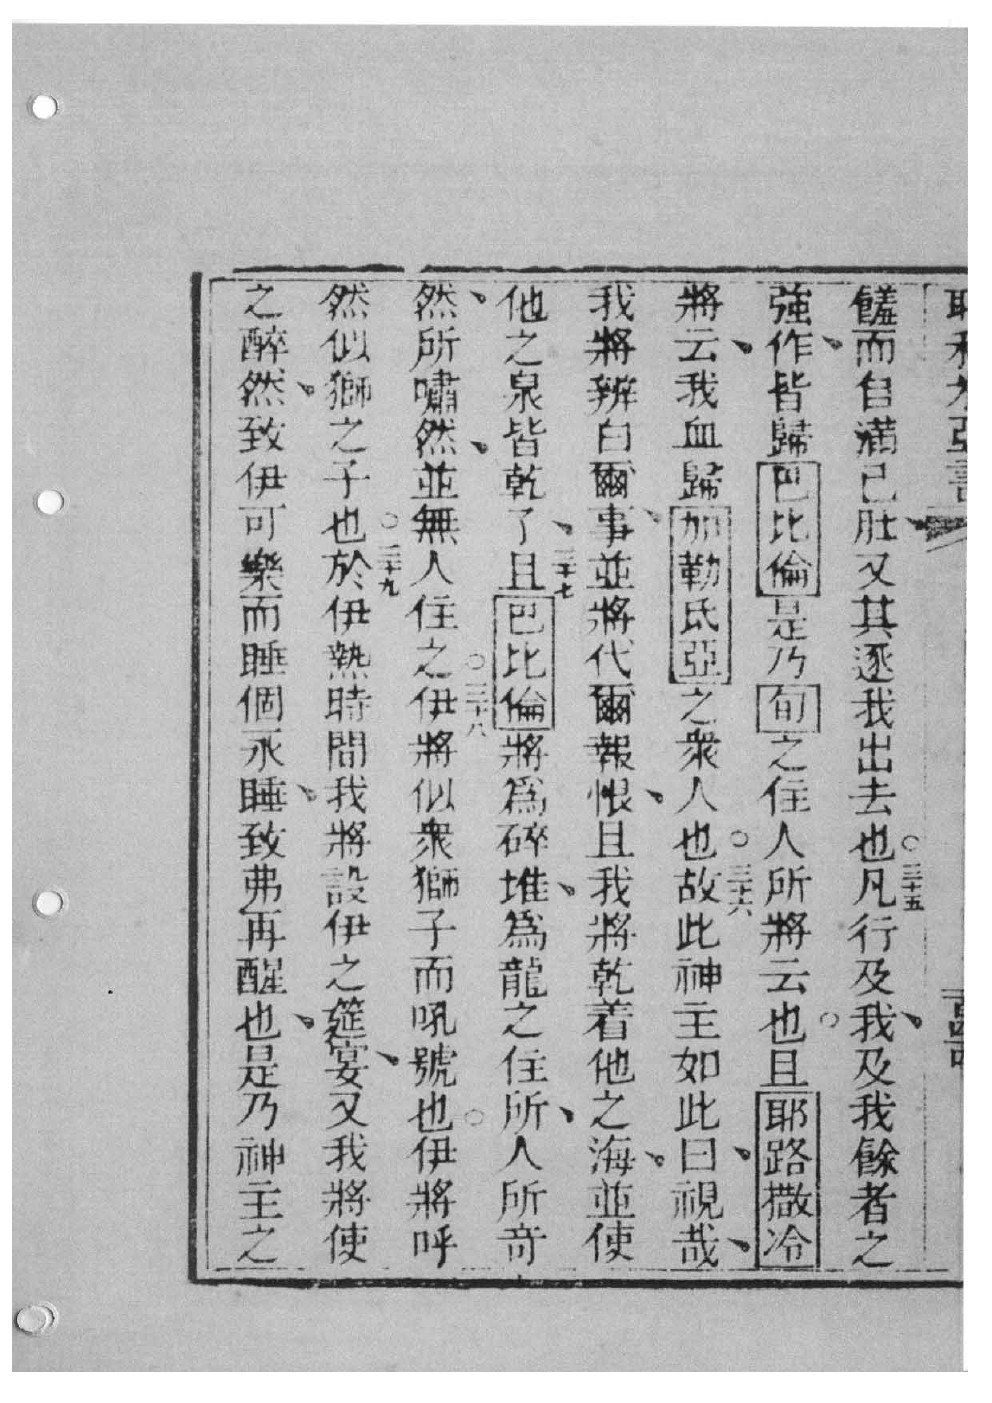 饈而自滿己肚又其逐我出去也○三十五凡行及我及我餘者之
強作皆歸巴比倫是乃旬之住人所將云也○且耶路撒冷
將云我血歸加勒氐亞之衆人也○三十六故此神主如此曰視哉
我將辨白爾事並將代爾報恨且我將乾着他之海並使
他之泉皆乾了三十七且巴比倫將爲碎堆爲龍之住所人所竒
然所嘯然並無人住之○三十八伊將似衆獅子而吼號也○伊將呼
然似獅之子也○三十九於伊熱時間我將設伊之筵宴又我將使
之醉然致伊可樂而睡個永睡致弗再醒也是乃神主之